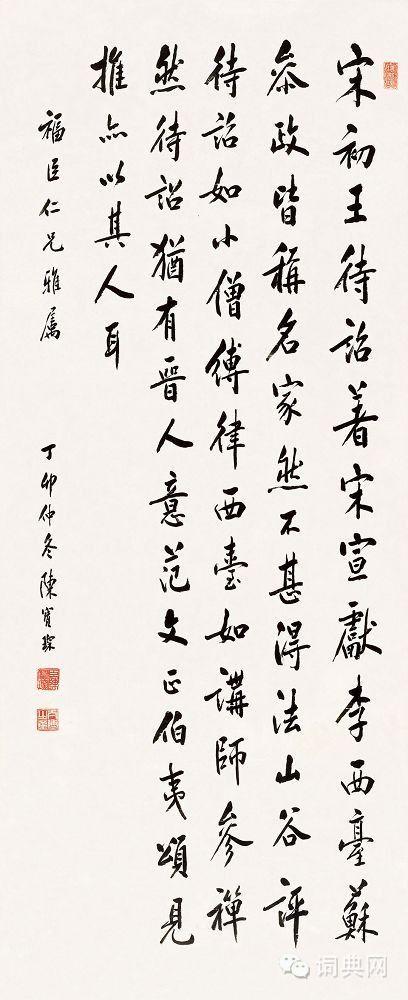 宋初王待詔着宋宣獻李西臺蘇
叅政皆稱名家然不甚得法山谷評
待詔如小僧縛律西臺如講師參禪
然待詔猶有晉人意范文正伯夷頌見
推亦以其人耳
福臣仁兄雅屬
丁卯仲冬陳寶琛
词典网